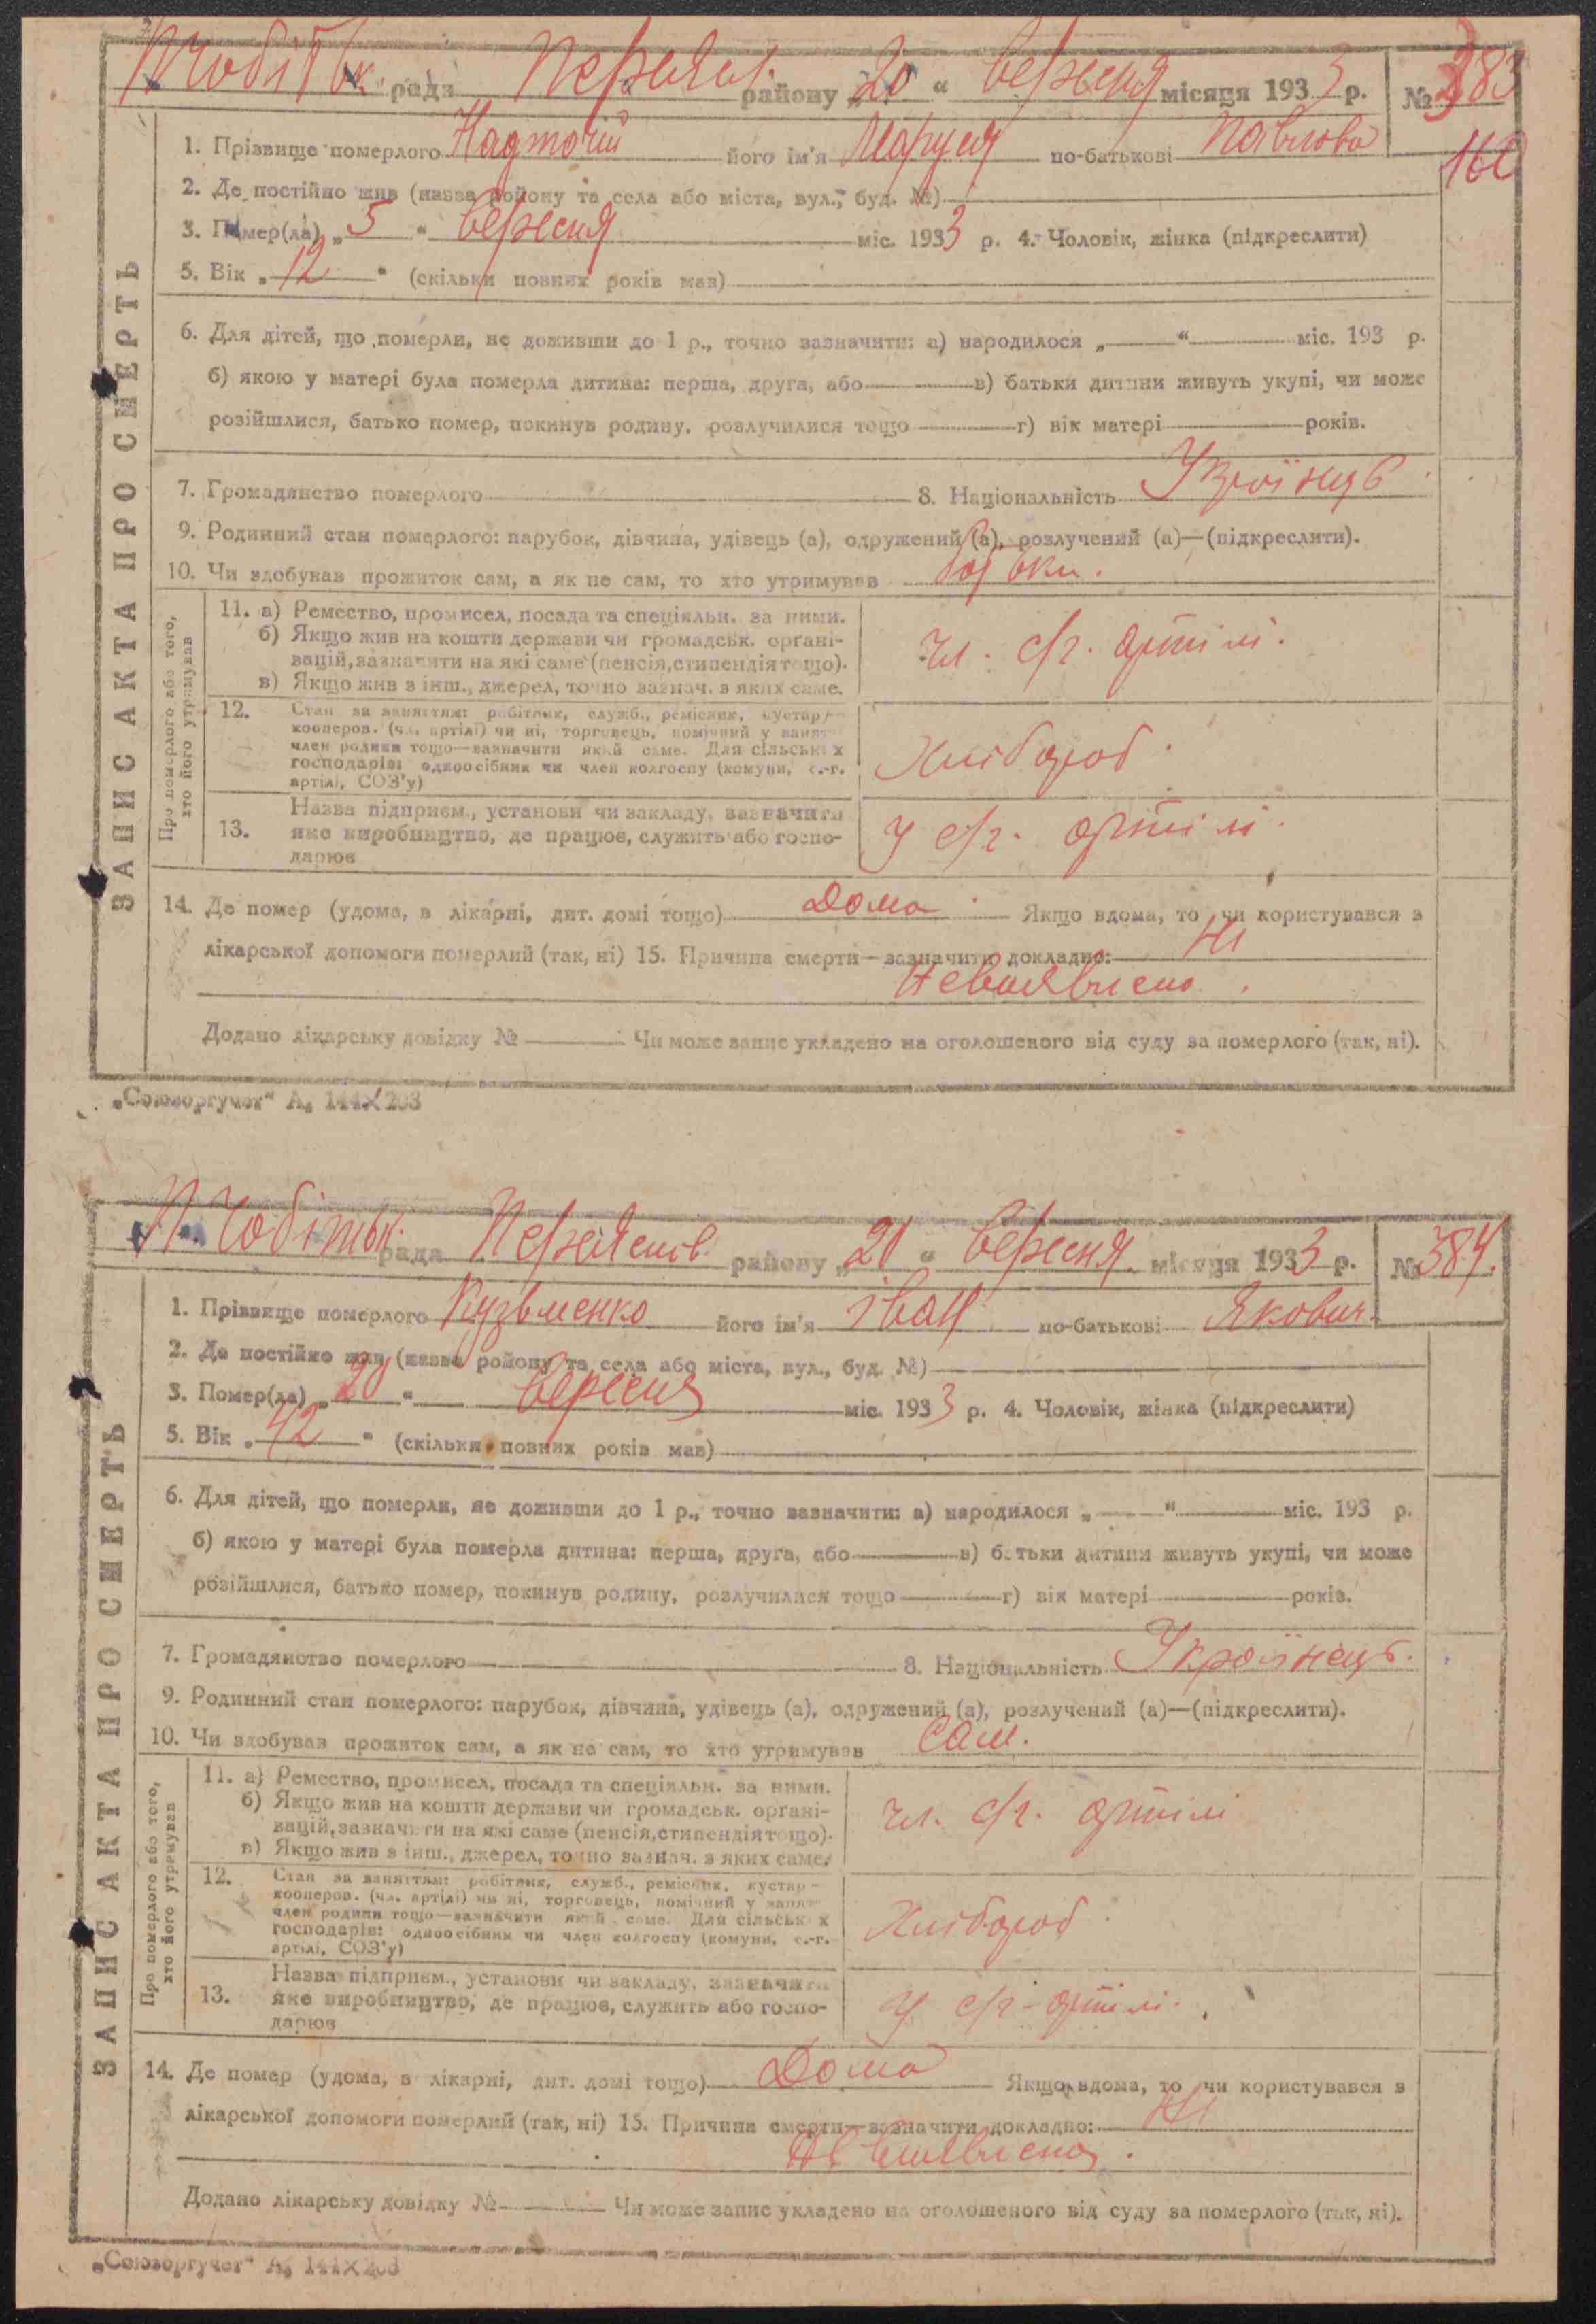 рада Переясл. району „20“ вересня місяця 1933 р. № 383
1. Прізвище померлого Надточій його ім'я Маруся по-батькові Павлова
160
2. Де постійно жив (назва району та села або міста, вул., буд. №)
3. Помер(ла) „5“ вересня міс. 1933 р. 4. Чоловік, жінка (підкреслити)
5. Вік „12“ (скільки повних років мав)
ЗАПИС АКТА ПРО СМЕРТЬ
6. Для дітей, що померли, не доживши до 1 р., точно зазначити: а) народилося „ “ міс. 193 р.
б) якою у матері була померла дитина: перша, друга, або в) батьки дитини живуть укупі, чи може
розійшлися, батько помер, покинув родину, розлучилися тощо г) вік матері років.
7. Громадянство померлого 8. Національність Українць
9. Родинний стан померлого: парубок, дівчина, удівець (а), одружений (а), розлучений (а)—(підкреслити).
10. Чи здобував прожиток сам, а як не сам, то хто утримував батьки.
Про померлого або того, хто його утримував
11. а) Ремество, промисел, посада та спеціяльн. за ними.
б) Якщо жив на кошти держави чи громадськ. органі-
зацій, зазначити на які саме (пенсія, стипендія тощо).
в) Якщо жив з інш., джерел, точно зазнач. з яких саме.
чл. с/г. артілі.
12. Стан за заняттям: робітник, служб., ремісник, кустар-
кооперов. (чл. артілі) чи ні, торговець, помічний у занят
член родини тощо—зазначити який саме. Для сільськ х
господарів: одноосібник чи член колгоспу (комуни, с.-г.
артілі, СОЗ'у)
Хлібороб.
13. Назва підприєм., установи чи закладу, зазначити
яке виробництво, де працює, служить або госпо-
дарює
У с/г. артілі.
14. Де помер (удома, в лікарні, дит. домі тощо) Дома. Якщо вдома, то чи користувався з
лікарської допомоги померлий (так, ні) 15. Причина смерти—зазначити докладно: Ні
Невиявлено.
Додано лікарську довідку № Чи може запис укладено на оголошеного від суду за померлого (так, ні).
„Союзоргучет“ А₅ 144×203
П. Чобітьк. рада Переяслів. району „20“ вересня. місяця 1933 р. № 384.
1. Прізвище померлого Кузьменко його ім'я Іван по-батькові Якович.
2. Де постійно жив (назва району та села або міста, вул., буд. №)
3. Помер(ла) „20“ вересня міс. 1933 р. 4. Чоловік, жінка (підкреслити)
5. Вік „42“ (скільки повних років мав)
ЗАПИС АКТА ПРО СМЕРТЬ
6. Для дітей, що померли, не доживши до 1 р., точно зазначити: а) народилося „ “ міс. 193 р.
б) якою у матері була померла дитина: перша, друга, або в) батьки дитини живуть укупі, чи може
розійшлися, батько помер, покинув родину, розлучилися тощо г) вік матері років.
7. Громадянство померлого 8. Національність Українець.
9. Родинний стан померлого: парубок, дівчина, удівець (а), одружений (а), розлучений (а)—(підкреслити).
10. Чи здобував прожиток сам, а як не сам, то хто утримував Сам.
Про померлого або того, хто його утримував
11. а) Ремество, промисел, посада та спеціяльн. за ними.
б) Якщо жив на кошти держави чи громадськ. органі-
зацій, зазначити на які саме (пенсія, стипендія тощо).
в) Якщо жив з інш., джерел, точно зазнач. з яких саме.
чл. с/г. артілі
12. Стан за заняттям: робітник, служб., ремісник, кустар-
кооперов. (чл. артілі) чи ні, торговець, помічний у занят
член родини тощо—зазначити який саме. Для сільськ х
господарів: одноосібник чи член колгоспу (комуни, с.-г.
артілі, СОЗ'у)
Хлібороб.
13. Назва підприєм., установи чи закладу, зазначити
яке виробництво, де працює, служить або госпо-
дарює
У с/г-артілі.
14. Де помер (удома, в лікарні, дит. домі тощо) Дома Якщо вдома, то чи користувався з
лікарської допомоги померлий (так, ні) 15. Причина смерти—зазначити докладно: Ні
Не виявлено.
Додано лікарську довідку № Чи може запис укладено на оголошеного від суду за померлого (так, ні).
„Союзоргучет“ А₅ 144×203